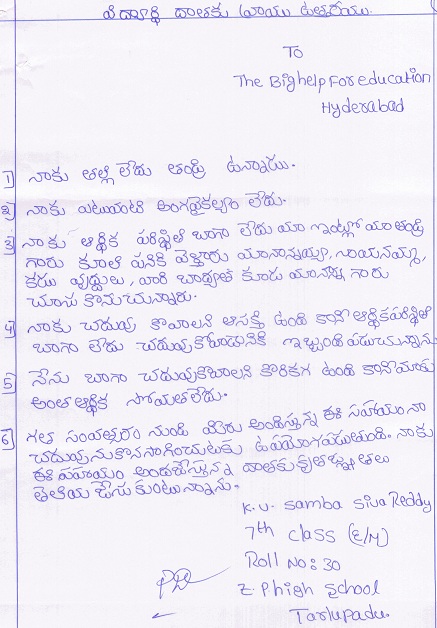 విద్యార్థి దాతకు వ్రాయు ఉత్తరము.
To
The Bighelp For education
Hyderabad
1] నాకు తల్లి లేదు తండ్రి ఉన్నారు.
2] నాకు ఎటువంటి అంగవైకల్యం లేదు.
3] నాకు ఆర్థిక పరిస్థితి బాగా లేదు మా ఇంట్లో మా తండ్రి
గారు కూలి పనికి వెళ్తారు మా నాన్నమ్మ,
వృద్ధులు, వారి బాధ్యత కుడు మా నాన్న గారు
చూసు కొనుచున్నారు.
4] నాకు చదువు కావాలని ఆసక్తి ఉంది కానీ ఆర్థికపరిస్థితి
బాగా లేదు చదువుకోడానికి ఇబ్బంది పడుచున్నాను
5] నేను బాగా చదువుకోవాలని కోరికగ ఉంది కానిమాకు
అంత ఆర్థిక సోమతలేదు.
6] గత సంవత్సరం నుండి మీరు అందిస్తున్న ఈ సహాయం నా
చదువును కొనసాగించుటకు ఉపయోగపడుతుంది. నాకు
ఈ సహాయం అందజేస్తున్న దాతకు కృతజ్ఞతలు
తెలియ జేసు కుంటున్నాను.
K.V. Samba Siva Reddy
7th class (E/M)
Roll No: 30
Z P high School
Tarlupadu.